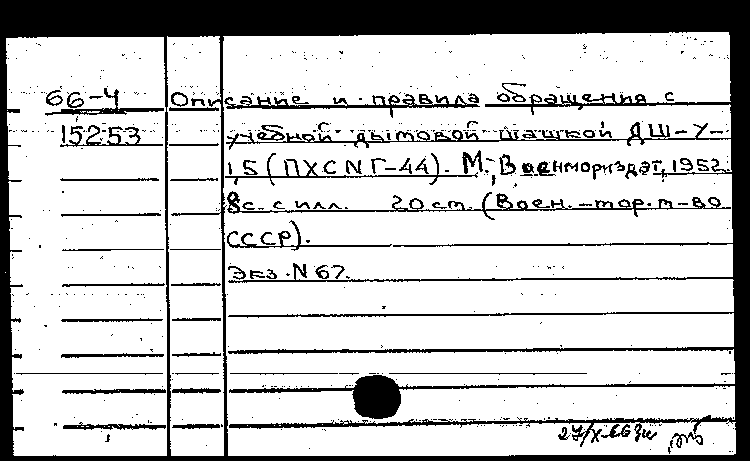 66-4 Описание и правила обращения с
152.53 учебной дымовой шашкой ДШ-У-
1,5 (ПХС NГ-44). М., Военмориздат, 1952.
8с. с илл. 20 ст. (Воен.-мор. м-во
СССР).
Экз. N 67.
27/X-66